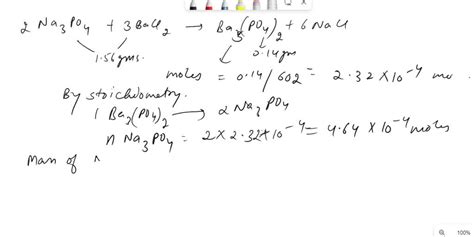 2 Na3PO4 + 3BaCl2 → Ba3(PO4)2 + 6NaCl
1.56gms. 0.14gms
moles = 0.14/602 = 2.32 × 10^-4 mo
By stoichiometry.
1 Ba2(PO4)2 → 2 Na3PO4
n Na3PO4 = 2 × 2.32 × 10^-4 = 4.64 × 10^-4 moles
Mass of
100%